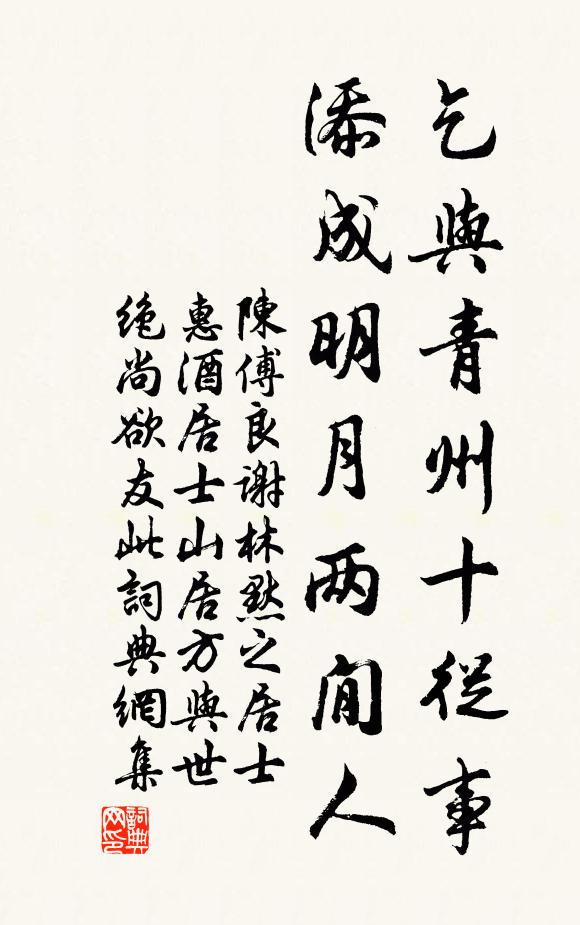 乞與青州十從事
添成明月两間人
陳傅良謝林黙之居士
惠酒居士山居方與世
绝尚欲友此詞典網集
詞典网印